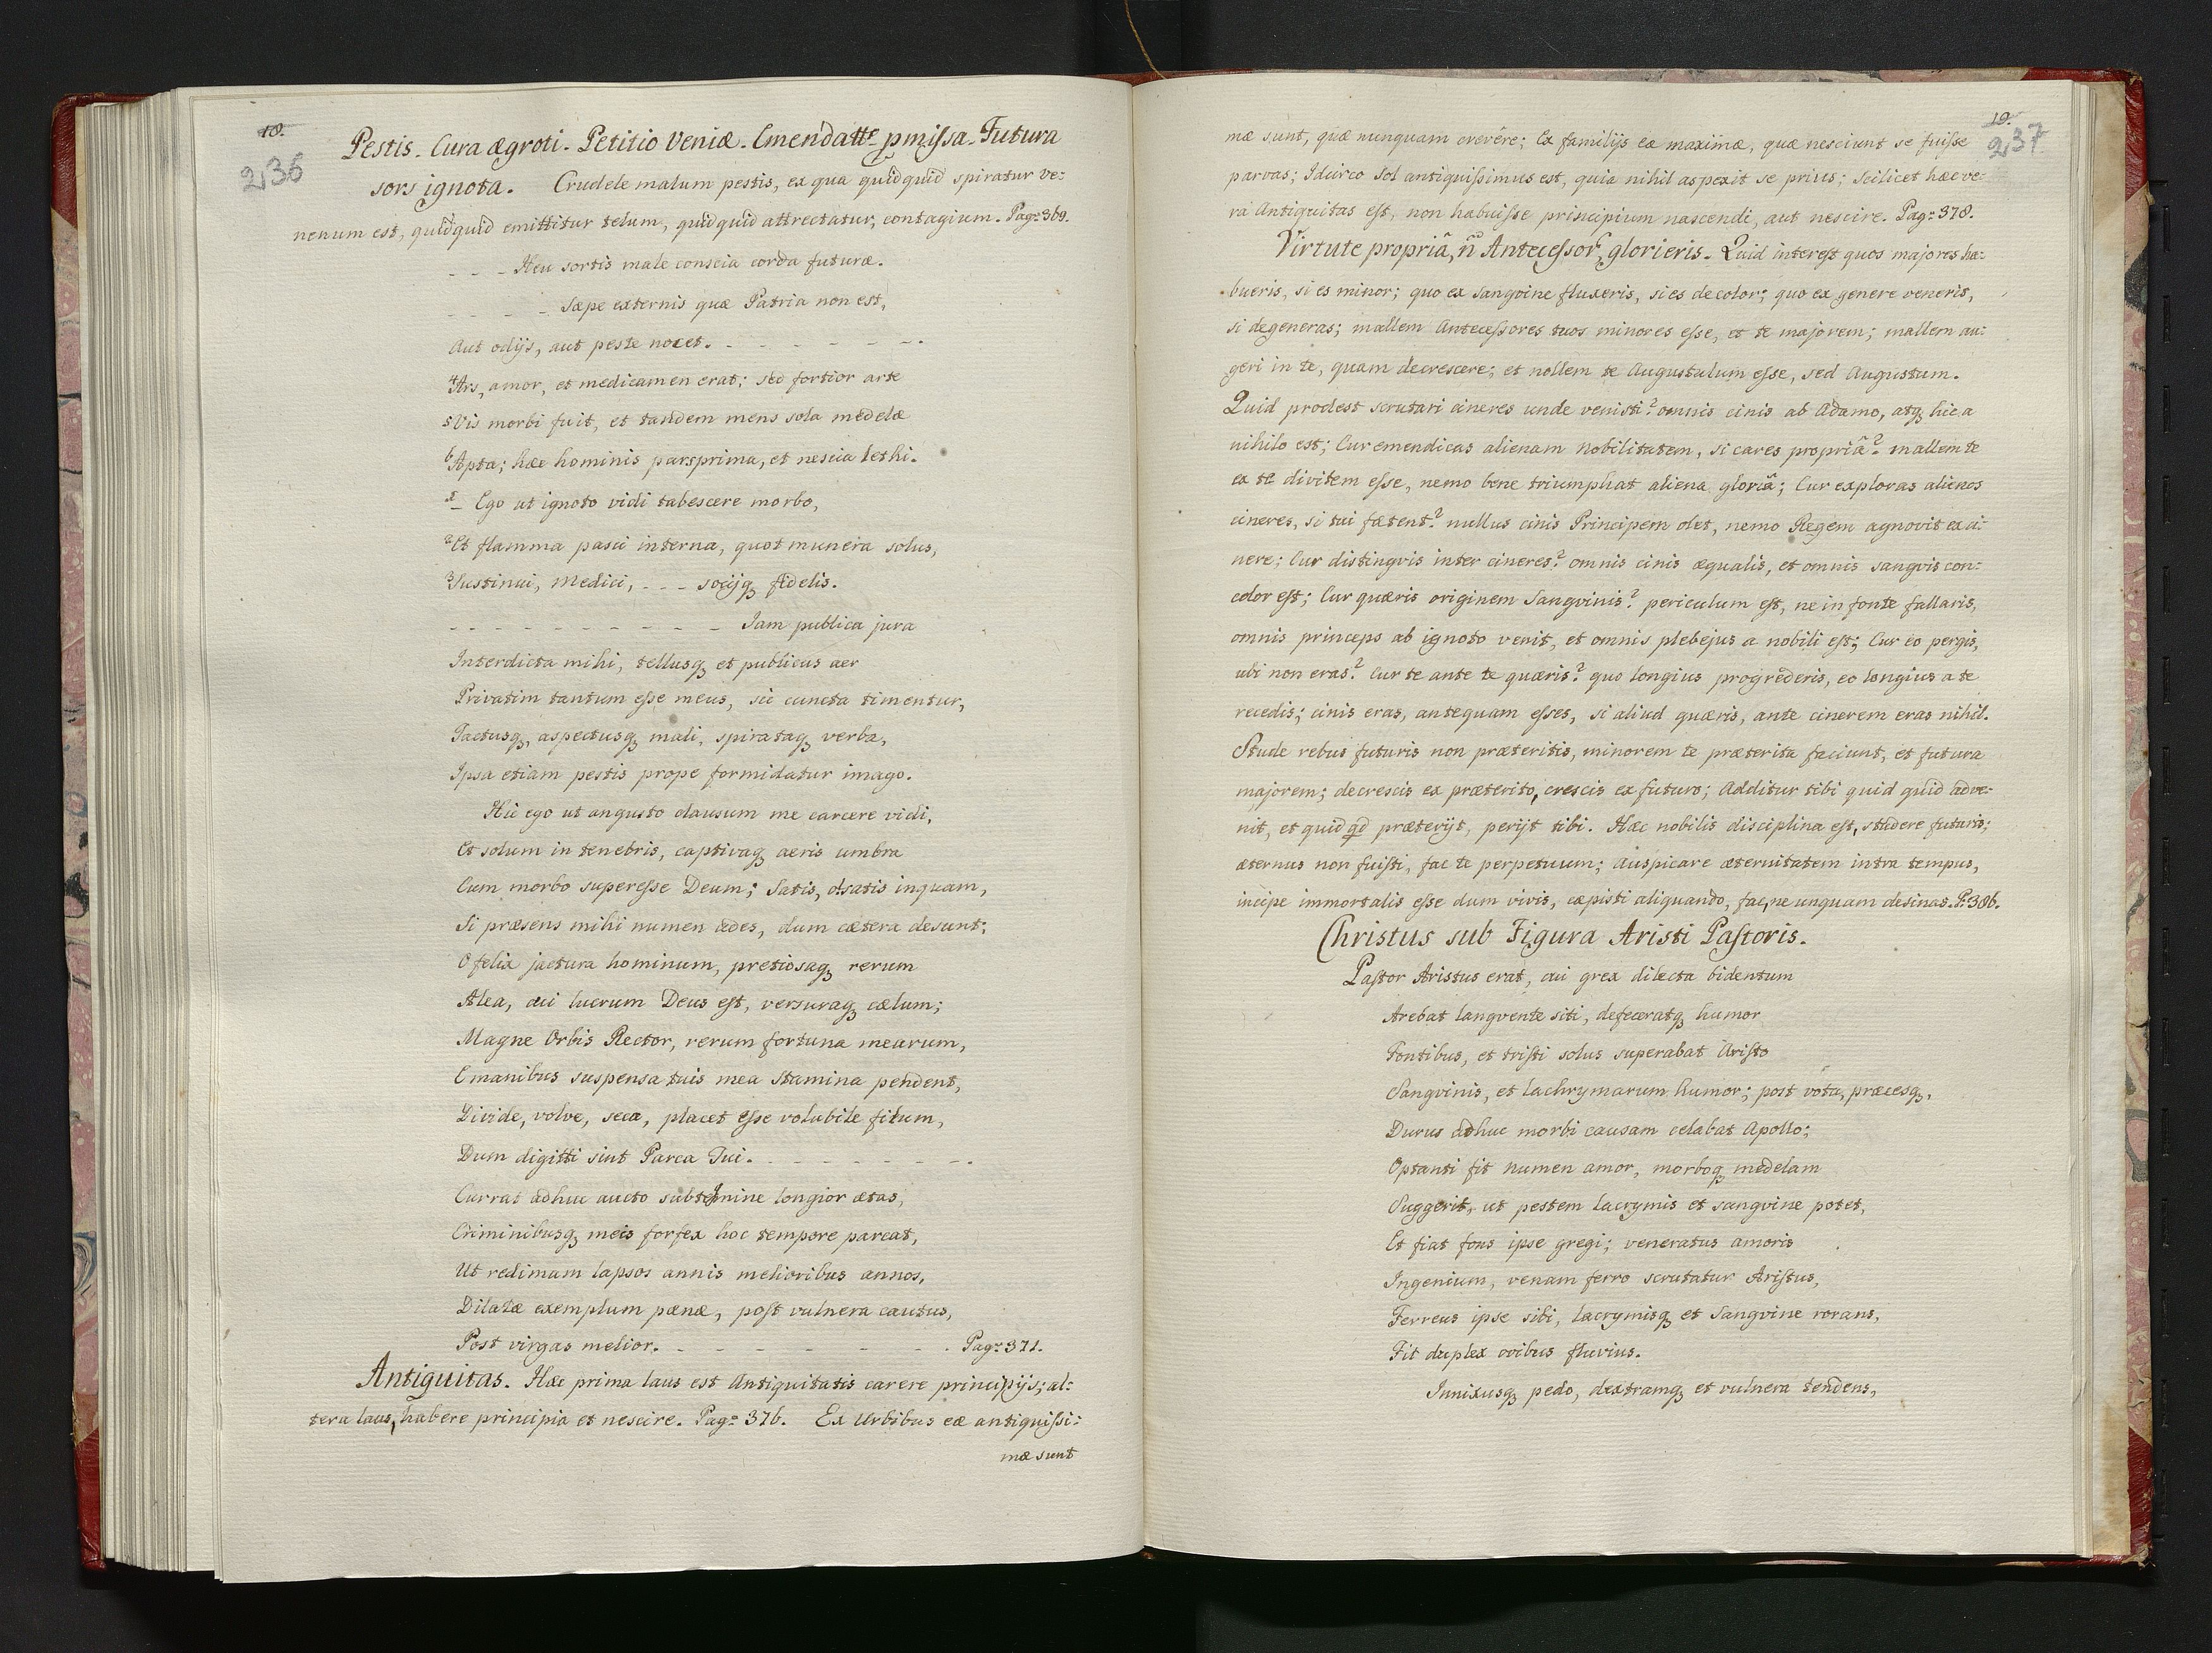 18.
236
Pestis. Cura ægroti. Petitio Veniæ. Emendatte pmissa. Futura
sors ignota. Crudele malum pestis, ex qua quidquid spiratur ve:
nenum est, quidquid emittitur telum, quidquid attrectatur, contagium. Pag: 369.
- - - Heu sortis male conscia corda futuræ.
- - - - Sæpe externis quæ Patria non est,
Aut odijs, aut peste nocet. - - - - - - -.
4 Ars, amor, et medicamen erat; sed fortior arte
5 Vis morbi fuit, et tandem mens sola medelæ
6 Apta; hæc hominis pars prima, et nescia lethi.
1 - Ego ut ignoto vidi tabescere morbo,
2 Et flamma pasci interna, quot munera solus,
3 Sustinui, Medici, - - - socijq₃ fidelis.
- - - - - - - - - - - Jam publica jura
Interdicta mihi, tellusq₃ et publicus aer
Privatim tantum esse meus, sic cuncta timentur,
Tactusq₃, aspectusq₃ mali, spirataq₃ verba,
Ipsa etiam pestis prope formidatur imago.
Hic ego ut angusto clausum me carcere vidi,
Et solum in tenebris, captivaq₃ aeris umbra
Cum morbo superesse Deum; Satis, o satis inquam,
Si præsens mihi numen ades, dum cætera desunt;
O felix jactura hominum, pretiosaq₃ rerum
Alea, cui lucrum Deus est, versuraq₃ cælum;
Magne Orbis Rector, rerum fortuna mearum,
E manibus suspensa tuis mea stamina pendent,
Divide, volve, seca, placet esse volubile filum,
Dum digitti sint Parca Tui. - - - - - - - -.
Currat adhuc aucto subtemine longior ætas,
Criminibusq₃ meis forfex hoc tempore parcat,
Ut redimam lapsos annis melioribus annos,
Dilatæ exemplum pænæ, post vulnera cautus,
Post virgas melior. - - - - - - - - . Pag: 371.
Antiquitas. Hæc prima laus est Antiquitatis carere principijs; al:
tera laus, habere principia et nescire. Pag: 376. Ex Urbibus eæ antiquissi:
mæ sunt
19.
237
mæ sunt, quæ nunquam crevêre; Ex familijs eæ maximæ, quæ nesciunt se fuisse
parvas; Idcirco Sol antiquissimus est, quia nihil aspexit se prius; Scilicet hæc ve:
ra Antiquitas est, non habuisse principium nascendi, aut nescire. Pag: 378.
Virtute propriâ, ñ Antecessor, glorieris. Quid interest quos majores ha:
bueris, si es minor; quo ex sangvine fluxeris, si es decolor; quo ex genere veneris,
si degeneras; mallem Antecessores tuos minores esse, et te majorem; mallem au:
geri in te, quam decrescere; et nollem te Augustalum esse, sed Augustum.
Quid prodest scrutari cineres unde venisti? omnis cinis ab Adamo, atq₃ hic a
nihilo est; Cur emendicas alienam Nobilitatem, si cares propriâ? mallem te
ex te divitem esse, nemo bene triumphat aliena gloriâ; Cur exploras alienos
cineres, si tui fætent? nullus cinis Principem olet, nemo Regem agnovit ex ci:
nere; Cur distingvis inter cineres? omnis cinis æqualis, et omnis sangvis con:
color est; Cur quæris originem Sangvinis? periculum est, ne in fonte fallaris,
omnis princeps ab ignoto venit, et omnis plebejus a nobili est; Cur eo pergis,
ubi non eras? Cur te ante te quæris? quo longius progrederis, eo longius a te
recedis; cinis eras, antequam esses, si aliud quæris, ante cinerem eras nihil.
Stude rebus futuris non præteritis, minorem te præterita faciunt, et futura
majorem; decrescis ex præterito, crescis ex futuro; Additur tibi quid quid adve:
nit, et quid qd præterijt, perijt tibi. Hæc nobilis disciplina est, studere futuris;
æternus non fuisti, fac te perpetuum; Auspicare æternitatem intra tempus,
incipe immortalis esse dum vivis, cæpisti aliquando, fac, ne unquam desinas. P: 386.
Christus sub Figura Aristi Pastoris.
Pastor Aristus erat, cui grex dilecta bidentum
Arebat langvente siti, defeceratq₃ humor
Fontibus, et tristi solus superabat Aristo
Sangvinis, et lachrymarum humor; post vota, præcesq₃,
Durus adhuc morbi causam celabat Apollo;
Optanti fit numen amor, morboq₃ medelam
Suggerit, ut pestem lacrymis et sangvine potet,
Et fiat fons ipse gregi; veneratus amoris
Ingenium, venam ferro scrutatur Aristus,
Ferreus ipse sibi, lacrymisq₃ et Sangvine rorans,
Fit duplex ovibus fluvius.
Innixusq₃ pedo, dextramq₃ et vulnera tendens,